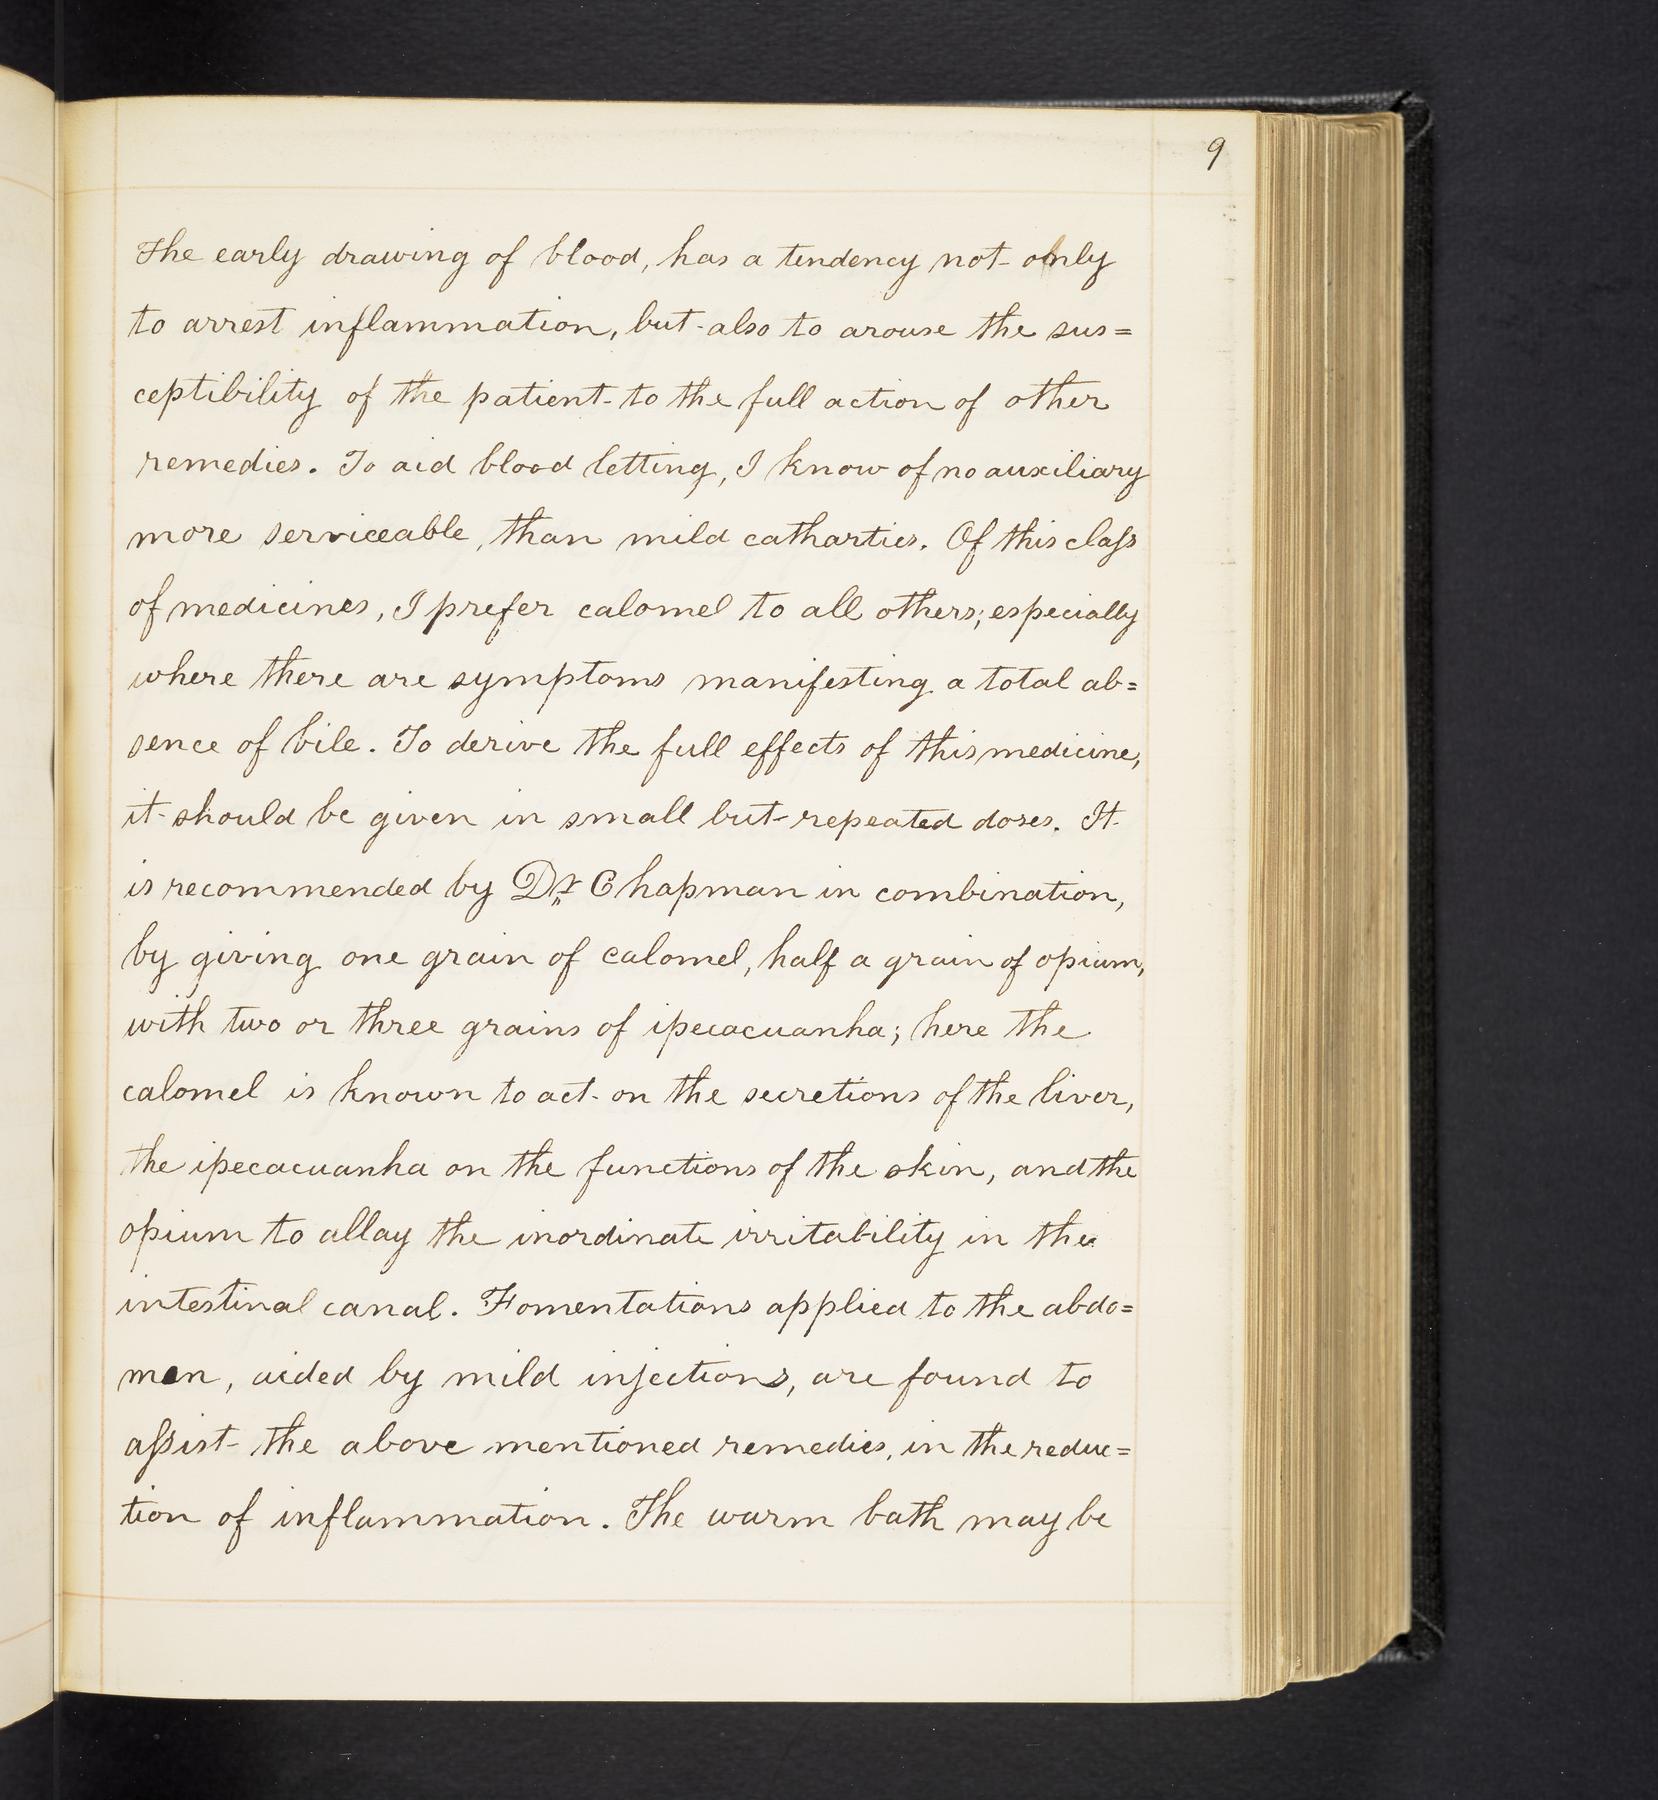 9
The early drawing of blood, has a tendency not only
to arrest inflammation, but also to arouse the sus=
ceptibility of the patient to the full action of other
remedies. To aid blood letting, I know of no auxiliary
more serviceable, than mild cathartics. Of this claſs
of medicines, I prefer calomel to all others; especially
where there are symptoms manifesting a total ab=
sence of bile. To derive the full effects of this medicine,
it should be given in small but repeated doses. It
is recommended by Dr. Chapman in combination,
by giving one grain of calomel, half a grain of opium,
with two or three grains of ipecacuanha; here the
calomel is known to act on the secretions of the liver,
the ipecacuanha on the functions of the skin, and the
opium to allay the inordinate irritability in the
intestinal canal. Fomentations applied to the abdo=
men, aided by mild injections, are found to
aſsist the above mentioned remedies, in the reduc=
tion of inflammation. The warm bath may be